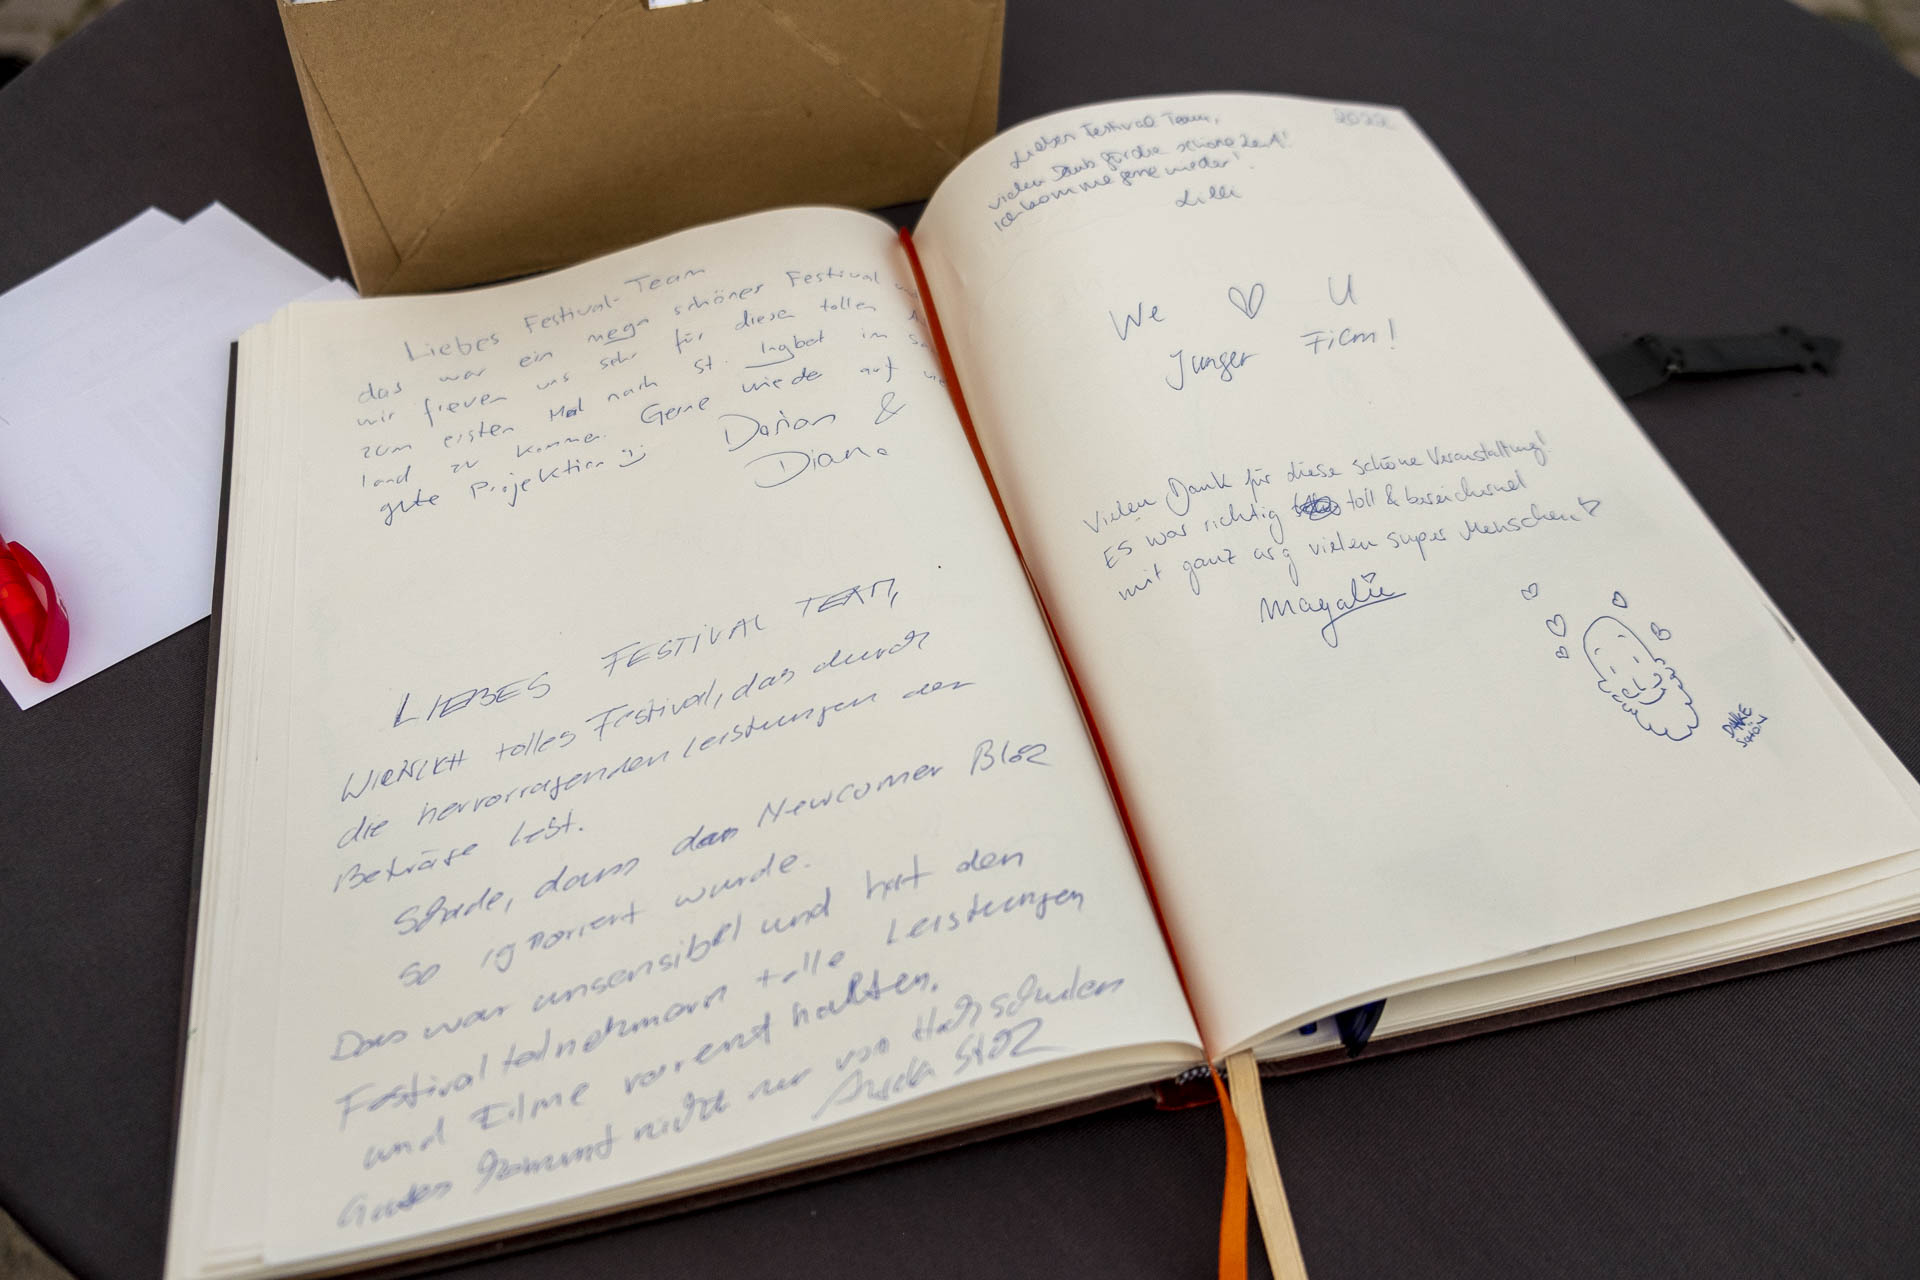 Liebes Festival-Team
das war ein mega schöner Festival
wir freuen uns sehr für diese tollen
zum ersten Mal nach St. Ingbet im
land zu kommen. Gerne wiede auf
gute Projektion :)
Dorian &
Diana
LIEBES FESTIVAL TEAM,
WIRKLICH tolles Festival, das durch
die hervorragenden Leistungen der
Beiträge lebt.
Schade, dass der Newcomer
so ignoriert wurde.
Das war unsensibel und hat den
Festivalteilnehmern tolle Leistungen
und Filme vorenthalten.
Gutes kommt nicht nur von Hochschulen
2022
Liebes Festival Team,
vielen Dank für die schöne Zeit!
Ich komme gerne wieder!
Lilli
We ♡ U
Junger Film!
Vielen Dank für diese schöne Veranstaltung!
ES war richtig toll & bereichernd
mit ganz arg vielen super Menschen ♡
Magalie
DANKE
SCHÖN